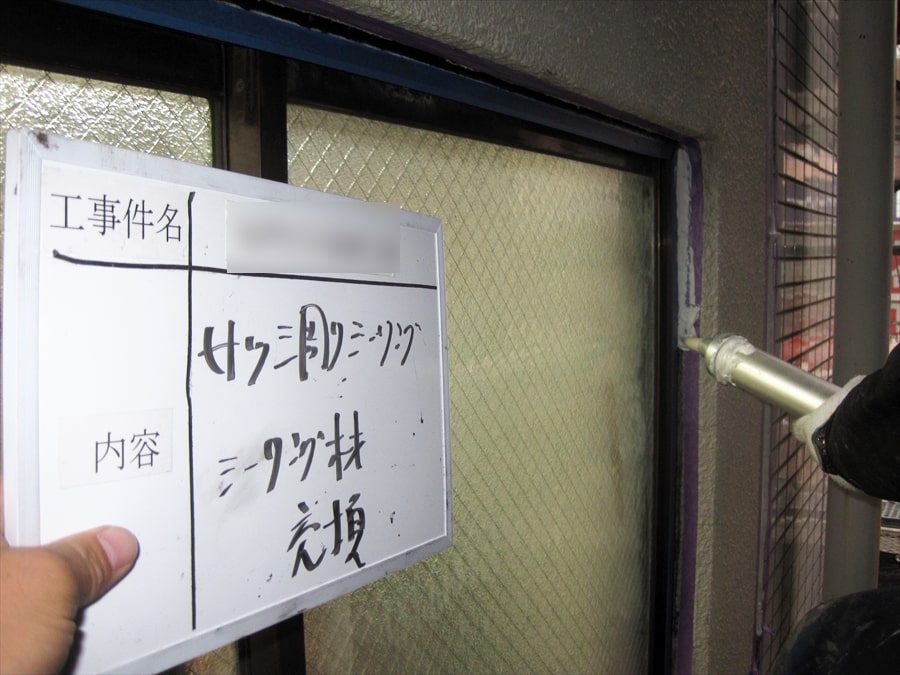 工事件名
サッシ周りシーリング
内容
シーリング材
充填